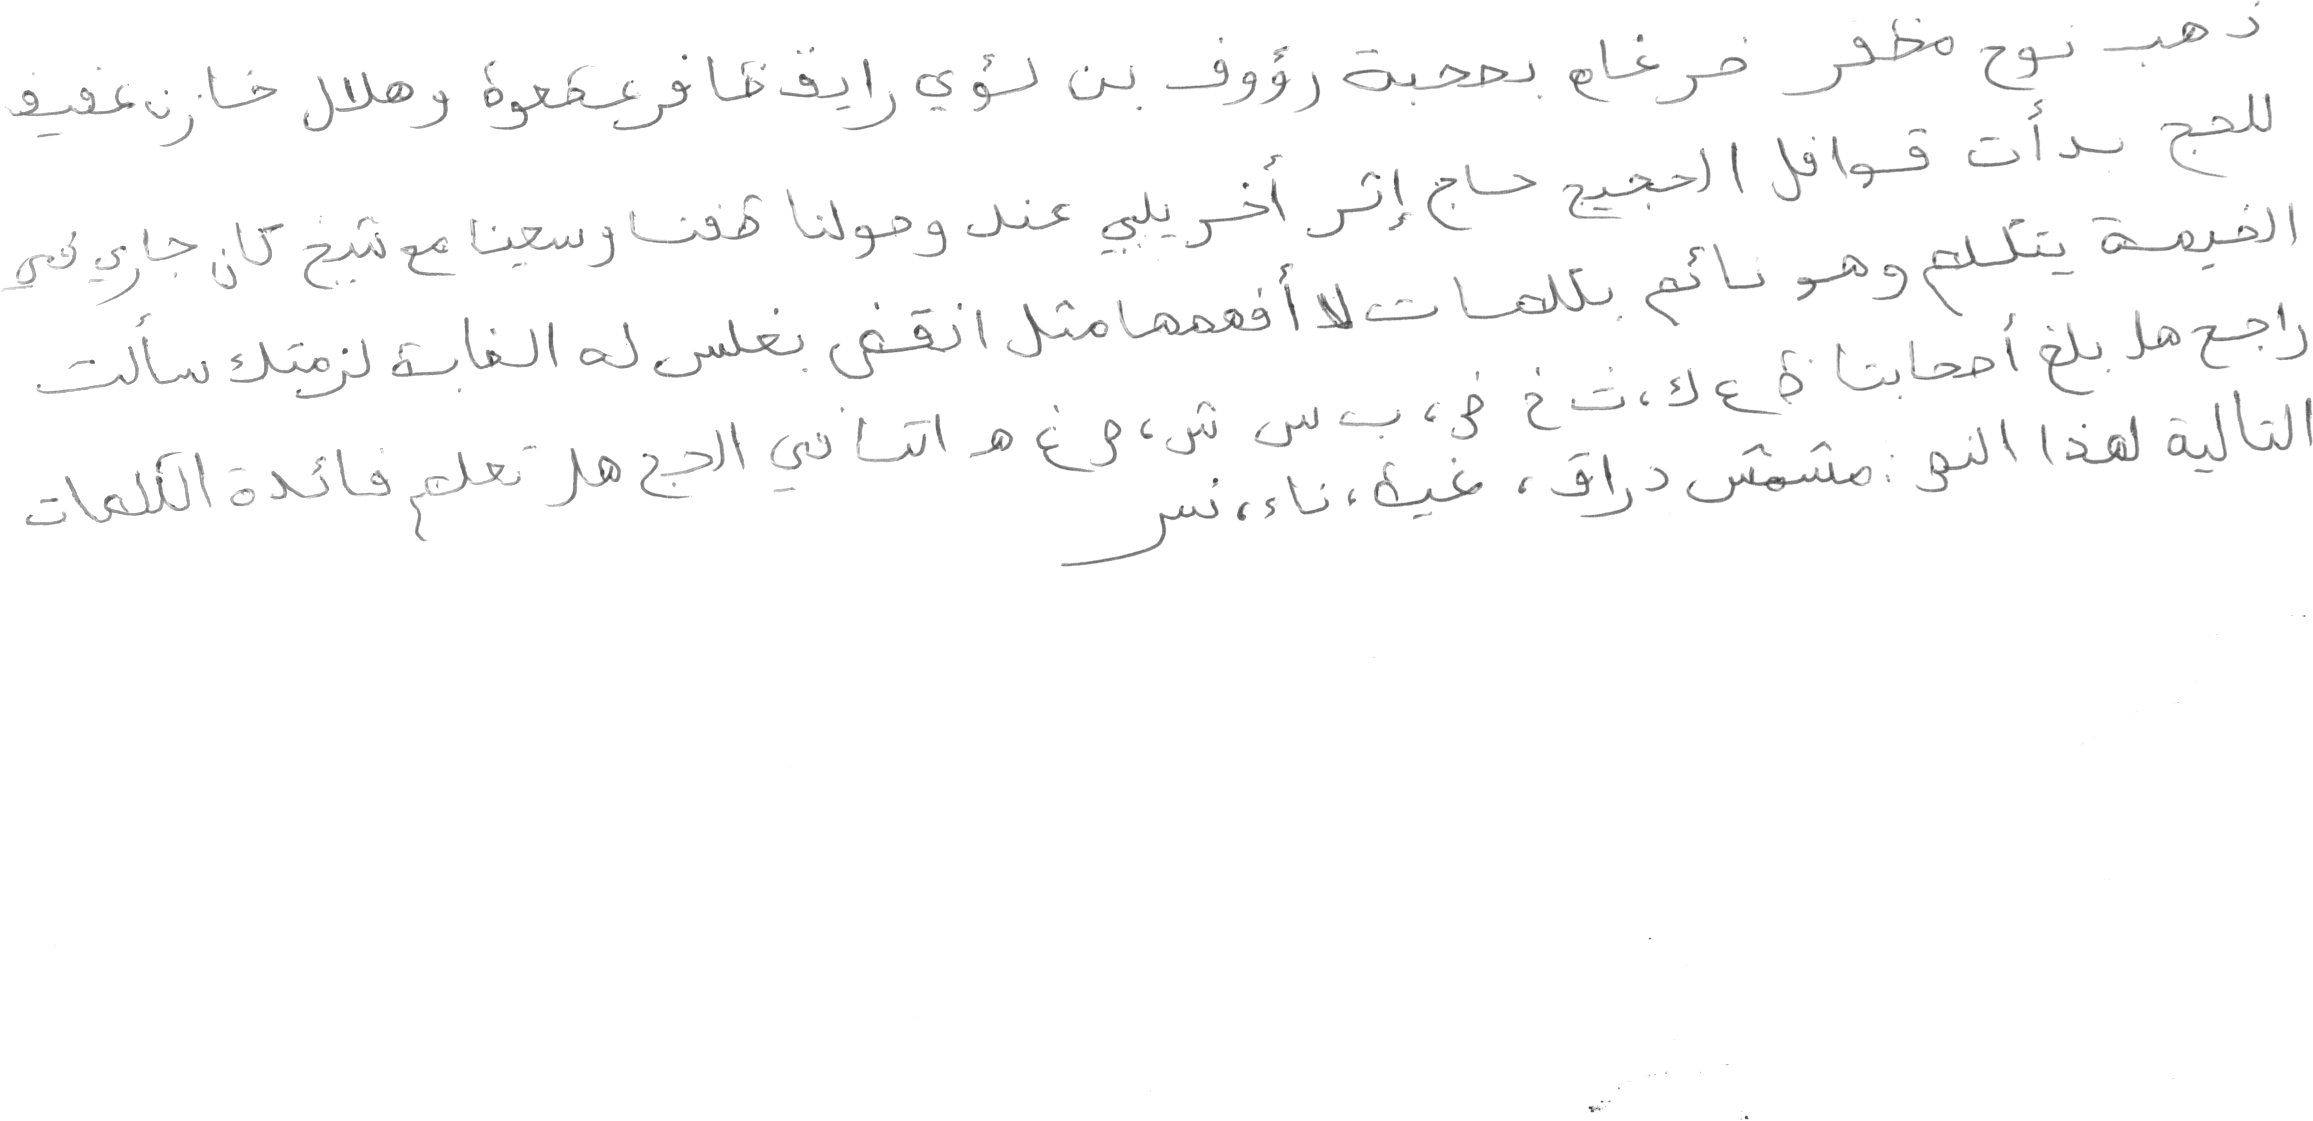 ذهب نوح مظفر ضرغام بصحبة رؤوف بن لؤي رايق ظافر عطعوط وهلال خازن عفيف
للحج بدأت قوافل الحجيج حاج إثر أخر يلبي عند وصولنا طفنا وسعينا مع شيخ كان جاري في
الخيمة يتكلم وهو نائم بكلمات لا أفهمها مثل انقض بغلس له الغابة لزمتك سألت
راجح هل بلغ أصحابنا ط ع ك، ث خ ض، ب س ش، ص غ ه اتسا في الحج هل تعلم فائدة الكلمات
التالية لهذا النص: مشمش دراق، غيظ، ناء، نسر